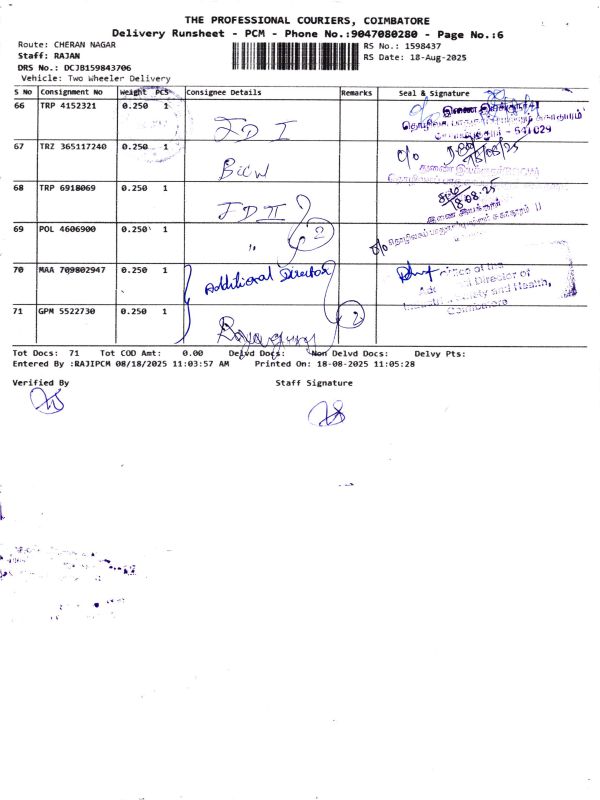 THE PROFESSIONAL COURIERS, COIMBATORE
Delivery Runsheet - PCM - Phone No.:9047080280 - Page No.:6
Route: CHERAN NAGAR
RS No.: 1598437
Staff: RAJAN
RS Date: 18-Aug-2025
DRS No.: DCJB159843706
Vehicle: Two Wheeler Delivery
S No Consignment No Weight PCS Consignee Details Remarks Seal & Signature
66 TRP 4152321 0.250 1 JD I
641029
67 TRZ 365117240 0.250 1 BCW
c/o
18/08/25
68 TRP 6918069 0.250 1 JD II
18.08.25
69 POL 4606900 0.250 1 " 2
c/o
70 MAA 709802947 0.250 1 Additional Director
Office of the
Additional Director of
Industrial Safety and Health,
Coimbatore
71 GPM 5522730 0.250 1 2
Tot Docs: 71 Tot COD Amt: 0.00 Delvd Docs: Non Delvd Docs: Delvy Pts:
Entered By :RAJIPCM 08/18/2025 11:03:57 AM Printed On: 18-08-2025 11:05:28
Verified By Staff Signature